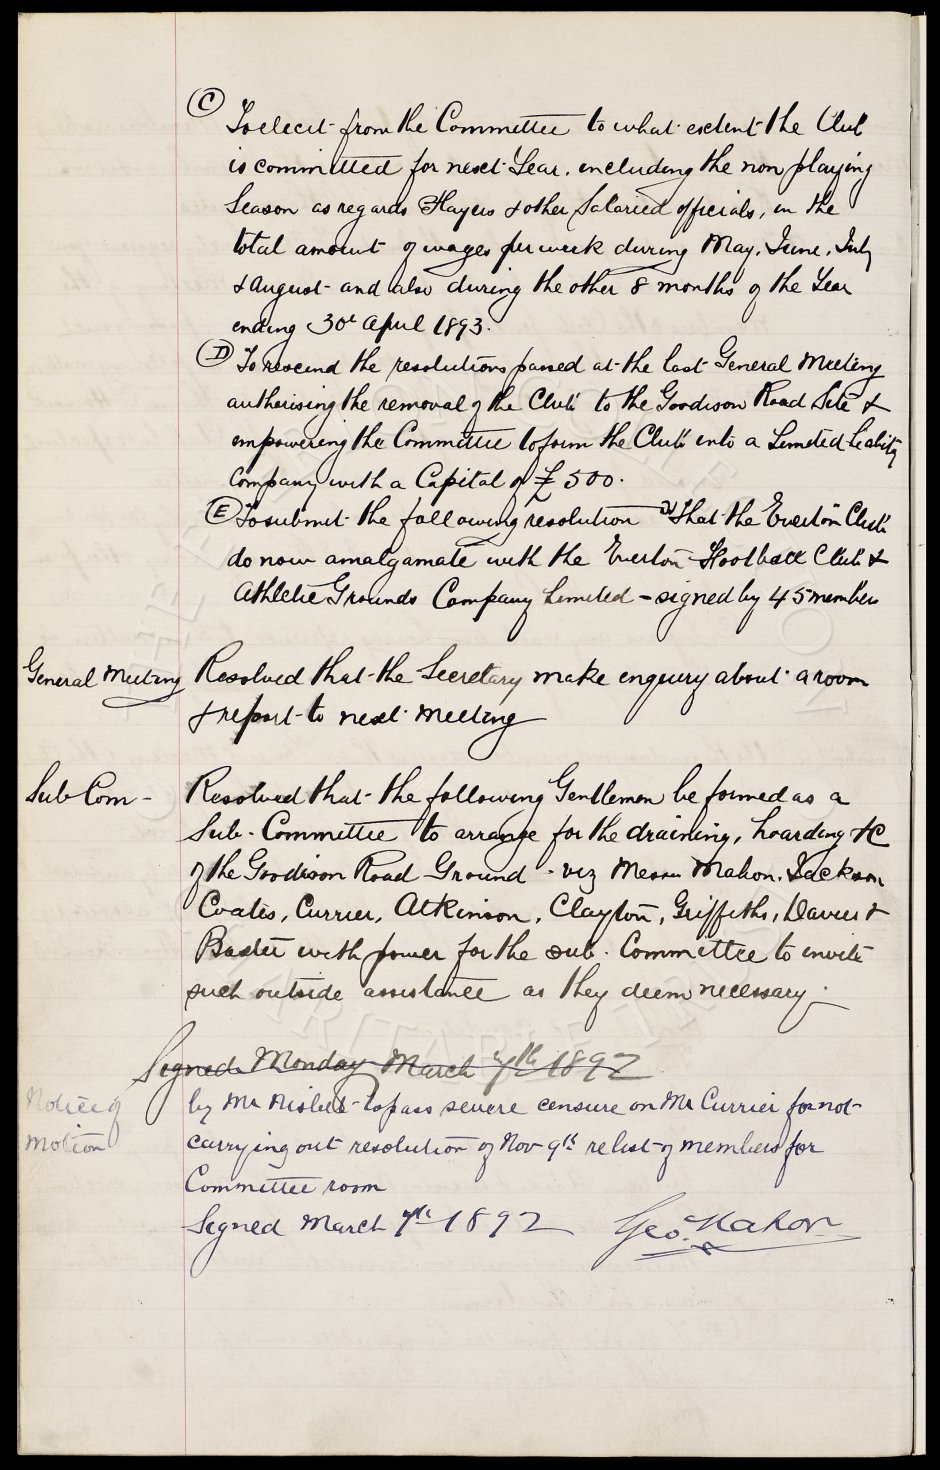 (C)
To elicit from the Committee to what extent the Club
is committed for next Year, including the non playing
Season as regards Players & other Salaried officials, in the
total amount of wages per week during May, June, July
& August - and also during the other 8 months of the Year
ending 30th April 1893.
(D) To rescind the resolutions passed at the last General Meeting
authorising the removal of the Club to the Goodison Road Site &
empowering the Committee to form the Club into a Limited Liability
Company with a Capital of £500.
(E) To submit the following resolution "That the Everton Club
do now amalgamate with the Everton Football Club &
Athletic Grounds Company Limited - signed by 45 members
General Meeting Resolved that the Secretary make enquiry about a room
& report to next meeting
Sub Com - Resolved that the following Gentlemen be formed as a
Sub-Committee to arrange for the draining, hoarding &c
of the Goodison Road Ground - viz Messrs Mahon, Jackson
Coates, Currier, Atkinson, Clayton, Griffiths, Davies &
Baxter with power for the sub-Committee to invite
such outside assistance as they deem necessary.
Signed Monday March 7th 1892
Notice of by Mr Nisbet to pass severe censure on Mr Currier for not
Motion carrying out resolution of Nov 9th re list of members for
Committee room
Signed March 7th 1892 Geo. Mahon